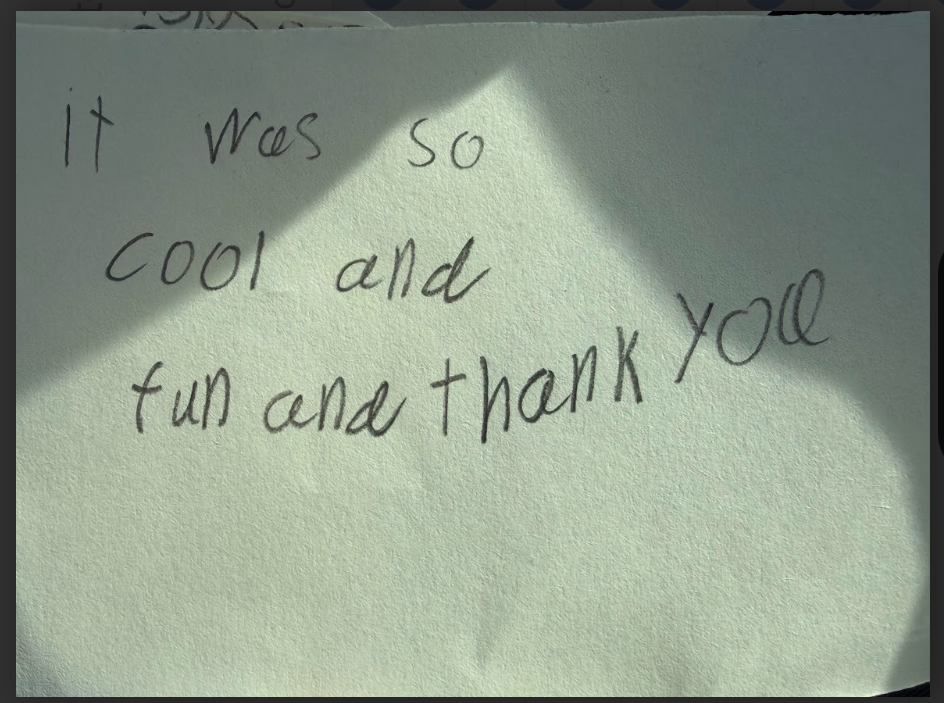 it was so
cool and
fun and thank you